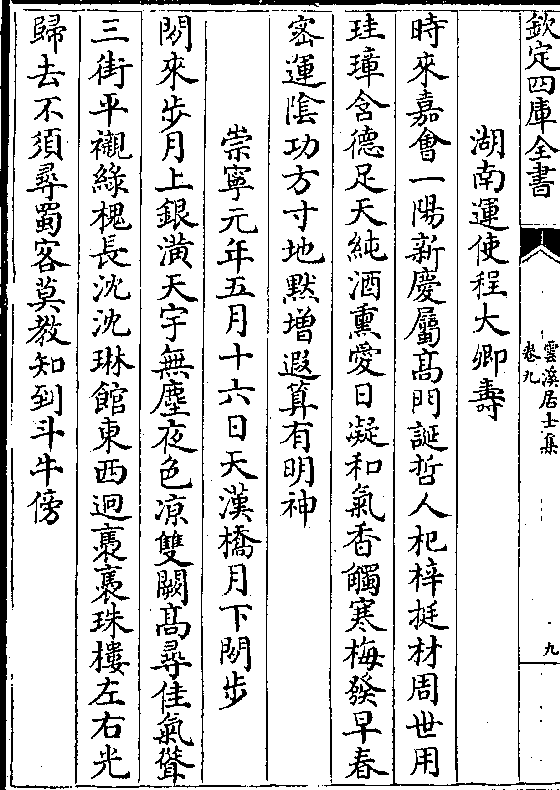 欽定四庫全書
雲溪居士集
卷九
九
湖南運使程大卿壽
時來嘉會一陽新慶屬髙門誕哲人杞梓挺材周世用
珪璋含德足天純酒熏愛日凝和氣香觸寒梅發早春
宻運陰功方寸地黙增遐算有明神
崇寧元年五月十六日天漢橋月下閒步
閒來步月上銀潢天宇無塵夜色凉雙闕髙尋佳氣聳
三街平襯綠槐長沈沈琳館東西迥裊裊珠樓左右光
歸去不須尋蜀客莫教知到斗牛傍